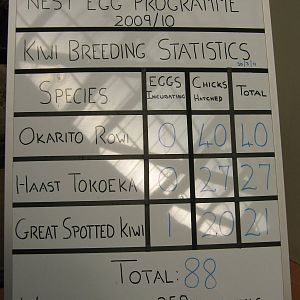 NEST EGG PROGRAMME
2009/10
KIWI BREEDING STATISTICS
SPECIES EGGS INCUBATING CHICKS HATCHED TOTAL
OKARITO ROWI 0 40 40
HAAST TOKOEKA 0 27 27
GREAT SPOTTED KIWI 1 20 21
TOTAL: 88